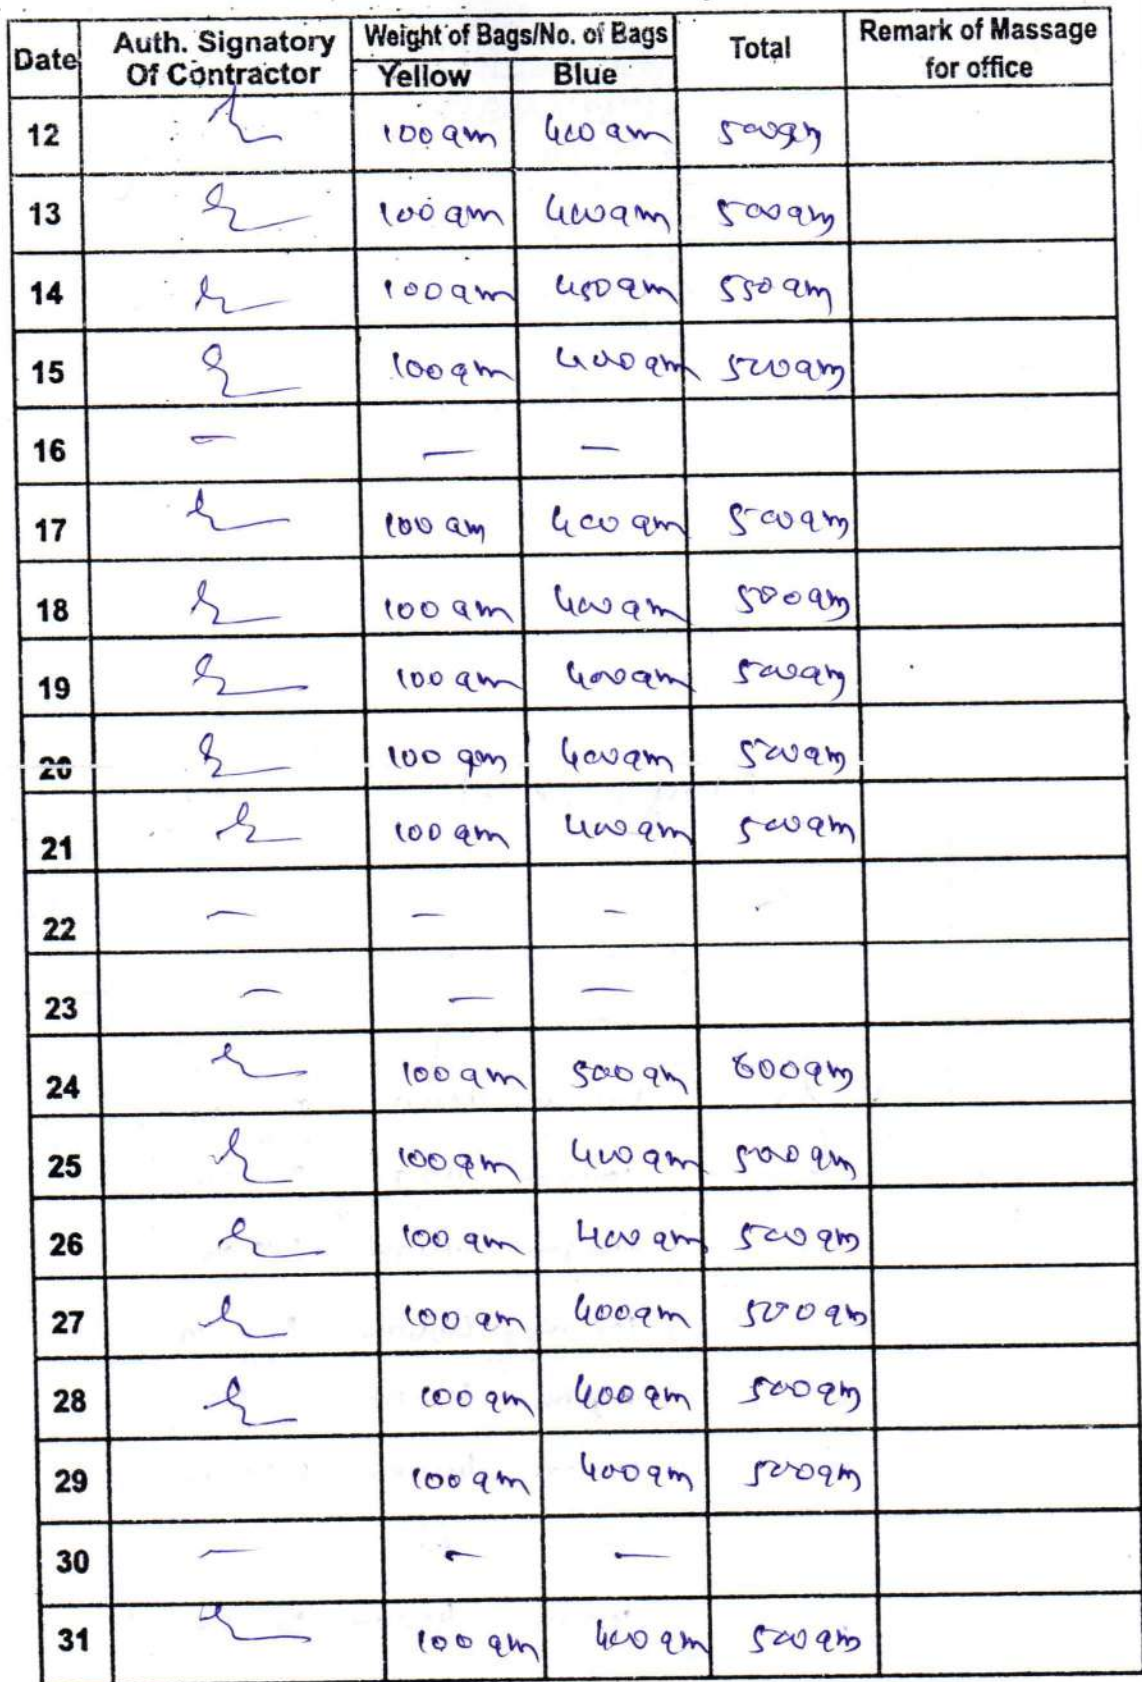 Date Auth. Signatory Of Contractor Weight of Bags/No. of Bags Yellow Blue Total Remark of Massage for office
12 100 gm 400 gm 500gm
13 100 gm 400gm 500gm
14 100gm 450gm 550 gm
15 100gm 400gm 500gm
16 — — —
17 100 gm 400 gm 500gm
18 100 gm 400gm 500gm
19 100 gm 400gm 500gm
20 100 gm 400gm 500gm
21 100 gm 400gm 500gm
22 — — —
23 — — —
24 100gm 500gm 600gm
25 100gm 400gm 500gm
26 100 gm 400 gm 500 gm
27 100 gm 400gm 500gm
28 100 gm 400gm 500gm
29 100 gm 400gm 500gm
30 — — —
31 100 gm 400 gm 500gm